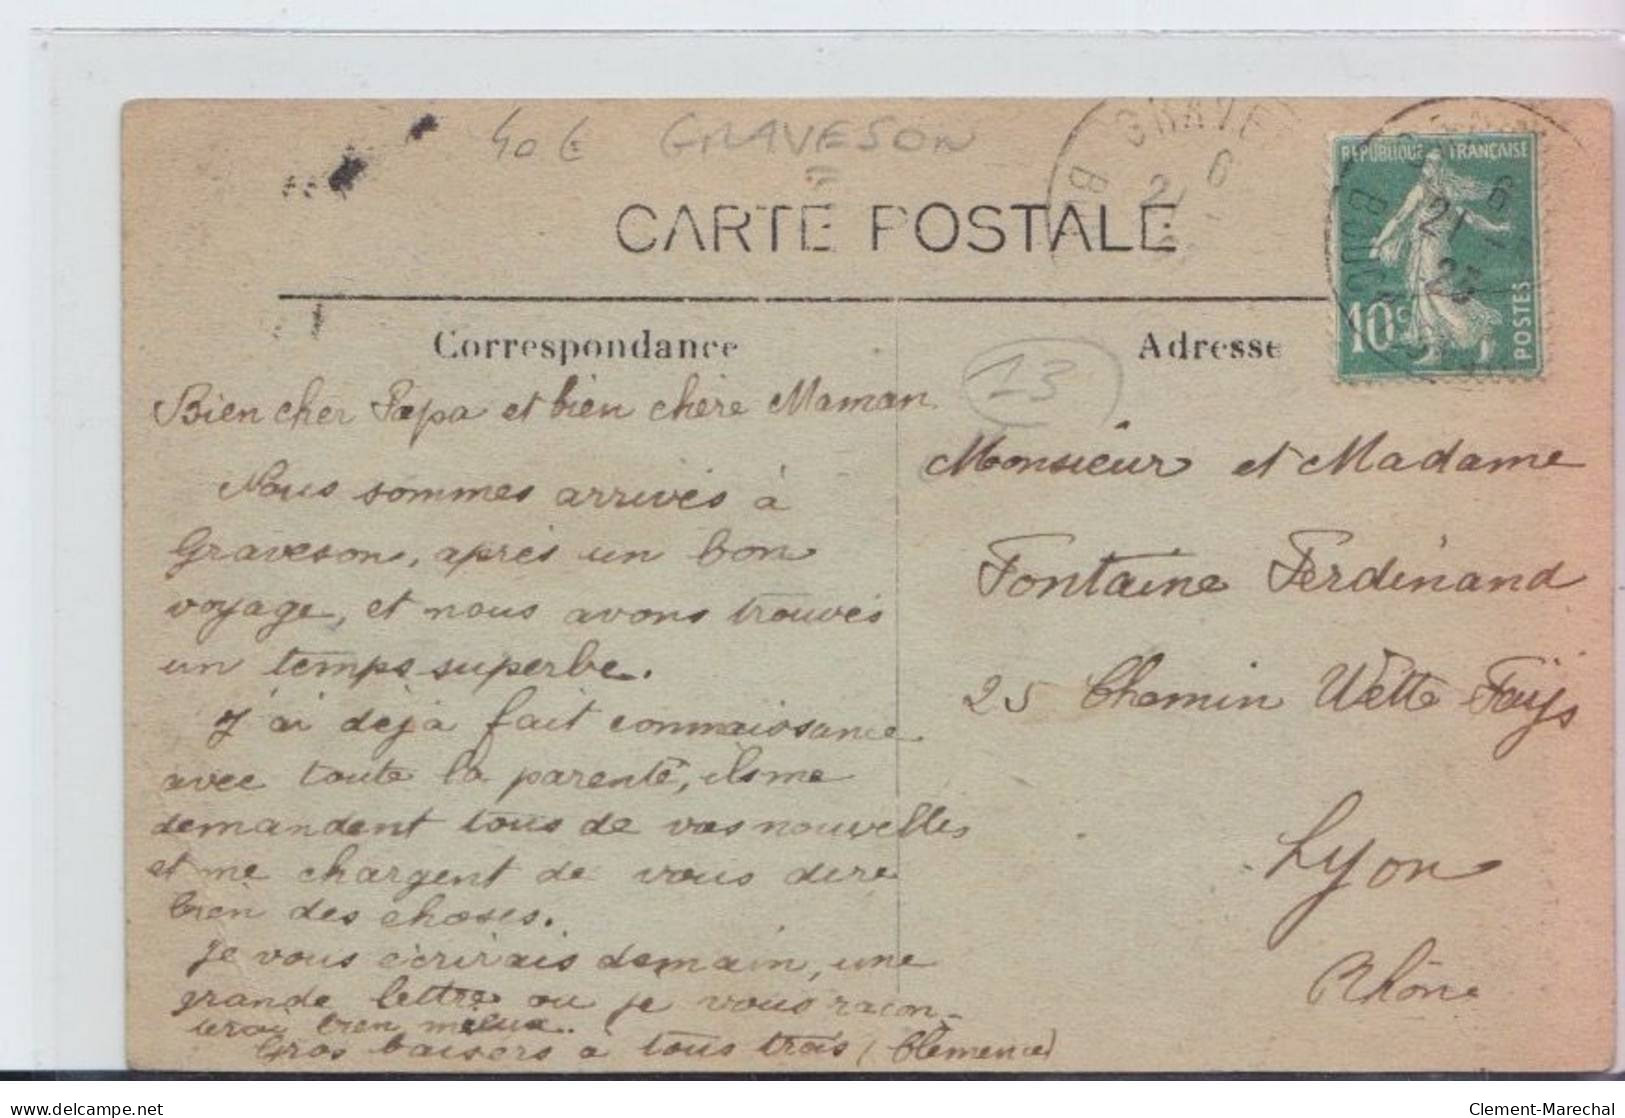 40 € GRAVESON
CARTE POSTALE
RÉPUBLIQUE FRANÇAISE
10c
POSTES
GRAVE
2 6
6
21
23
BOUC
Correspondance
Adresse
13
Bien cher Papa et bien chère Maman
Nous sommes arrivés à
Graveson, après un bon
voyage, et nous avons trouvés
un temps superbe.
J'ai déjà fait connaissance
avec toute la parenté, ils me
demandent tous de vos nouvelles
et me chargent de vous dire
bien des choses.
Je vous écrirais demain, une
grande lettre ou je vous racon-
terai bien mieux.
Gros baisers à tous trois (Clémence)
Monsieur et Madame
Fontaine Ferdinand
25 Chemin Wette Fays
Lyon
Rhône
delcampe.net
Clement-Marechal